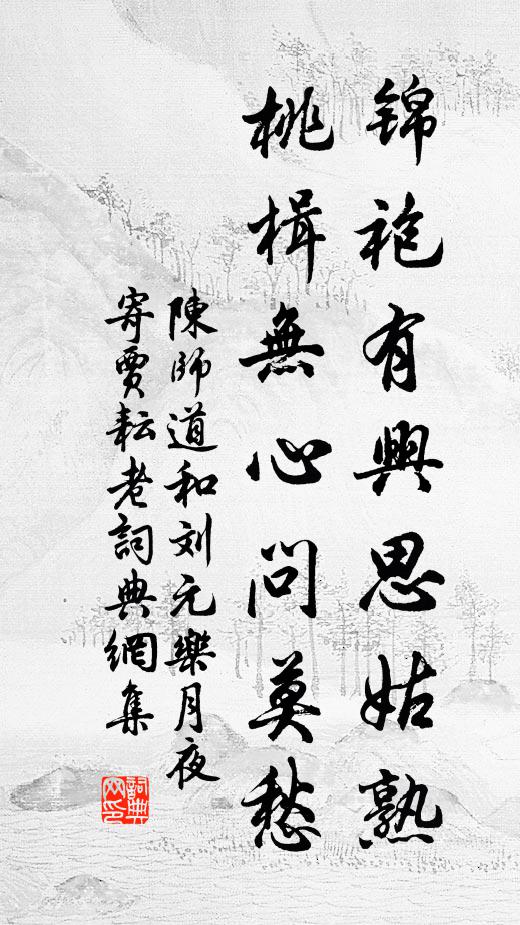 錦袍有興思姑熟
桃楫無心問莫愁
陳師道和刘元樂月夜
寄賈耘老詞典網集
詞典
网印